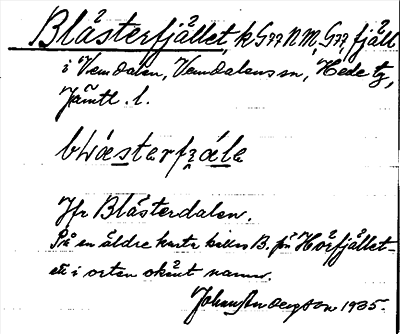 Blåsterfjället, k G77 NM, G77, fjäll
i Vemdalen, Vemdalens sn, Hede tg,
Jämtl. l.
Jfr Blåsterdalen.
På en äldre karta kallas B. på Hovfjället-
ett i orten okänt namn.
Johan Anderzon 1935.